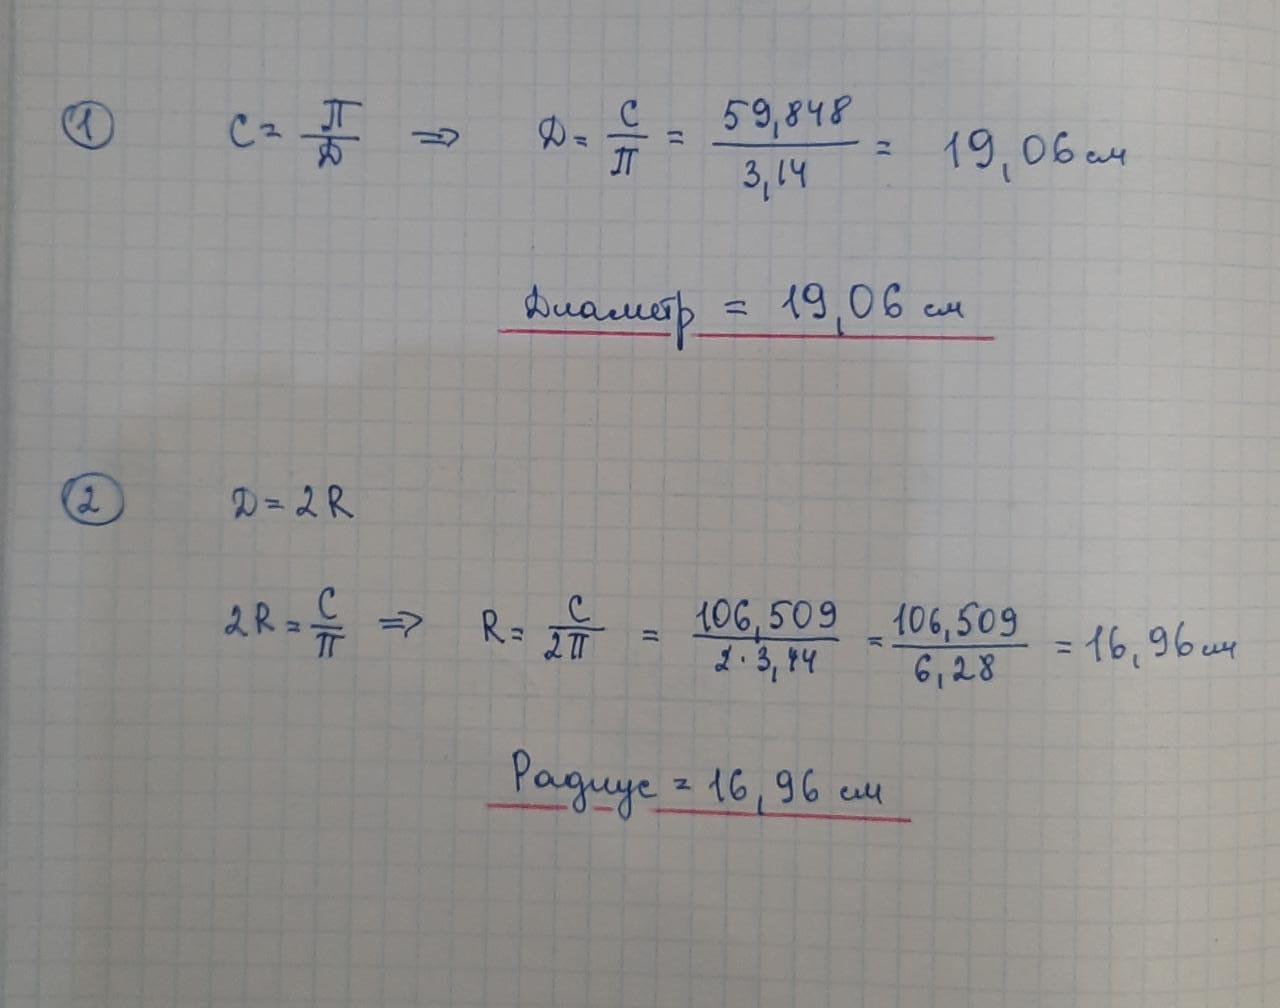 ① C = П/Д ⇒ Д = C/П = 59,848/3,14 = 19,06 см
Диаметр = 19,06 см
② Д = 2R
2R = C/П ⇒ R = C/2П = 106,509/2·3,14 = 106,509/6,28 = 16,96 см
Радиус = 16,96 см